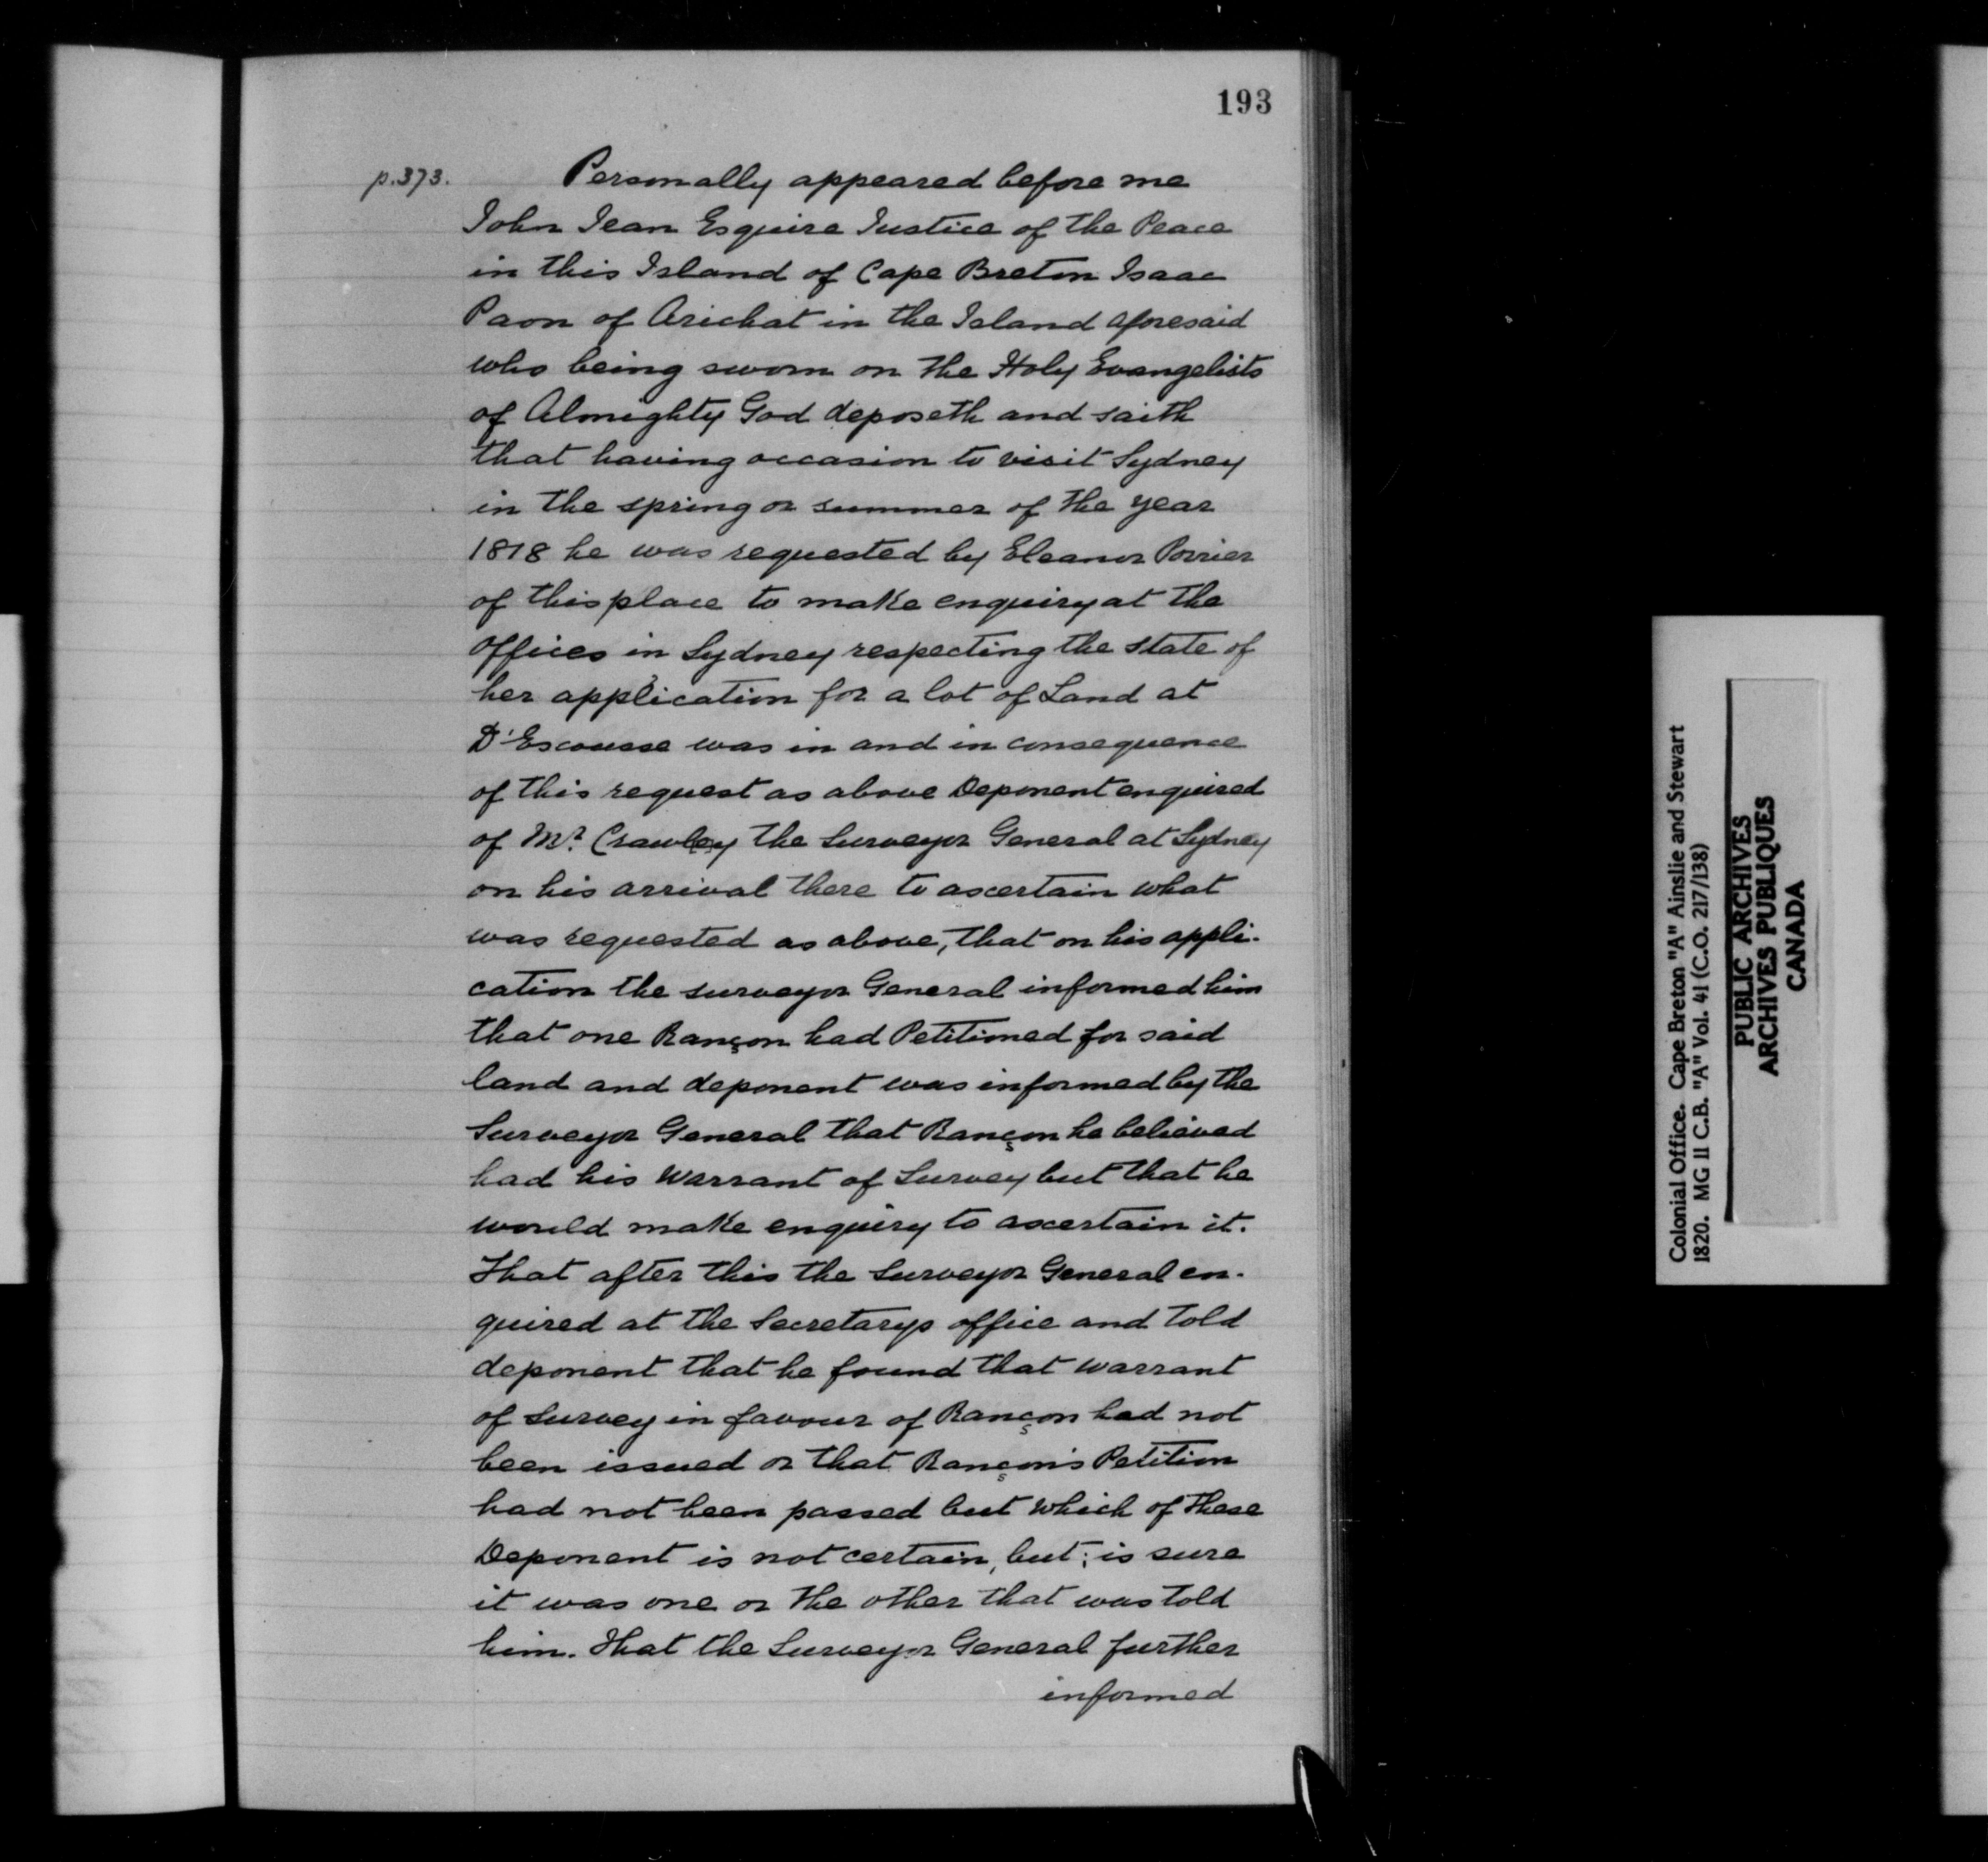 193
p.373.
Personally appeared before me
John Jean Esquire Justice of the Peace
in this Island of Cape Breton Isaac
Paon of Arichat in the Island aforesaid
who being sworn on the Holy Evangelists
of Almighty God deposeth and saith
that having occasion to visit Sydney
in the spring or summer of the year
1818 he was requested by Eleanor Poirier
of this place to make enquiry at the
offices in Sydney respecting the state of
her application for a lot of Land at
D'Escousse was in and in consequence
of this request as above Deponent enquired
of Mr. Crawley the Surveyor General at Sydney
on his arrival there to ascertain what
was requested as above, that on his appli-
cation the surveyor General informed him
that one Rançon had Petitioned for said
land and deponent was informed by the
Surveyor General that Rançon he believed
had his Warrant of Survey but that he
would make enquiry to ascertain it.
That after this the Surveyor General en-
quired at the Secretarys office and told
deponent that he found that warrant
of Survey in favour of Rançon had not
been issued or that Rançon's Petition
had not been passed but which of these
Deponent is not certain, but; is sure
it was one or the other that was told
him. That the Surveyor General further
informed
Colonial Office. Cape Breton "A" Ainslie and Stewart
1820. MG 11 C.B. "A" Vol. 41 (C.O. 217/138)
PUBLIC ARCHIVES
ARCHIVES PUBLIQUES
CANADA